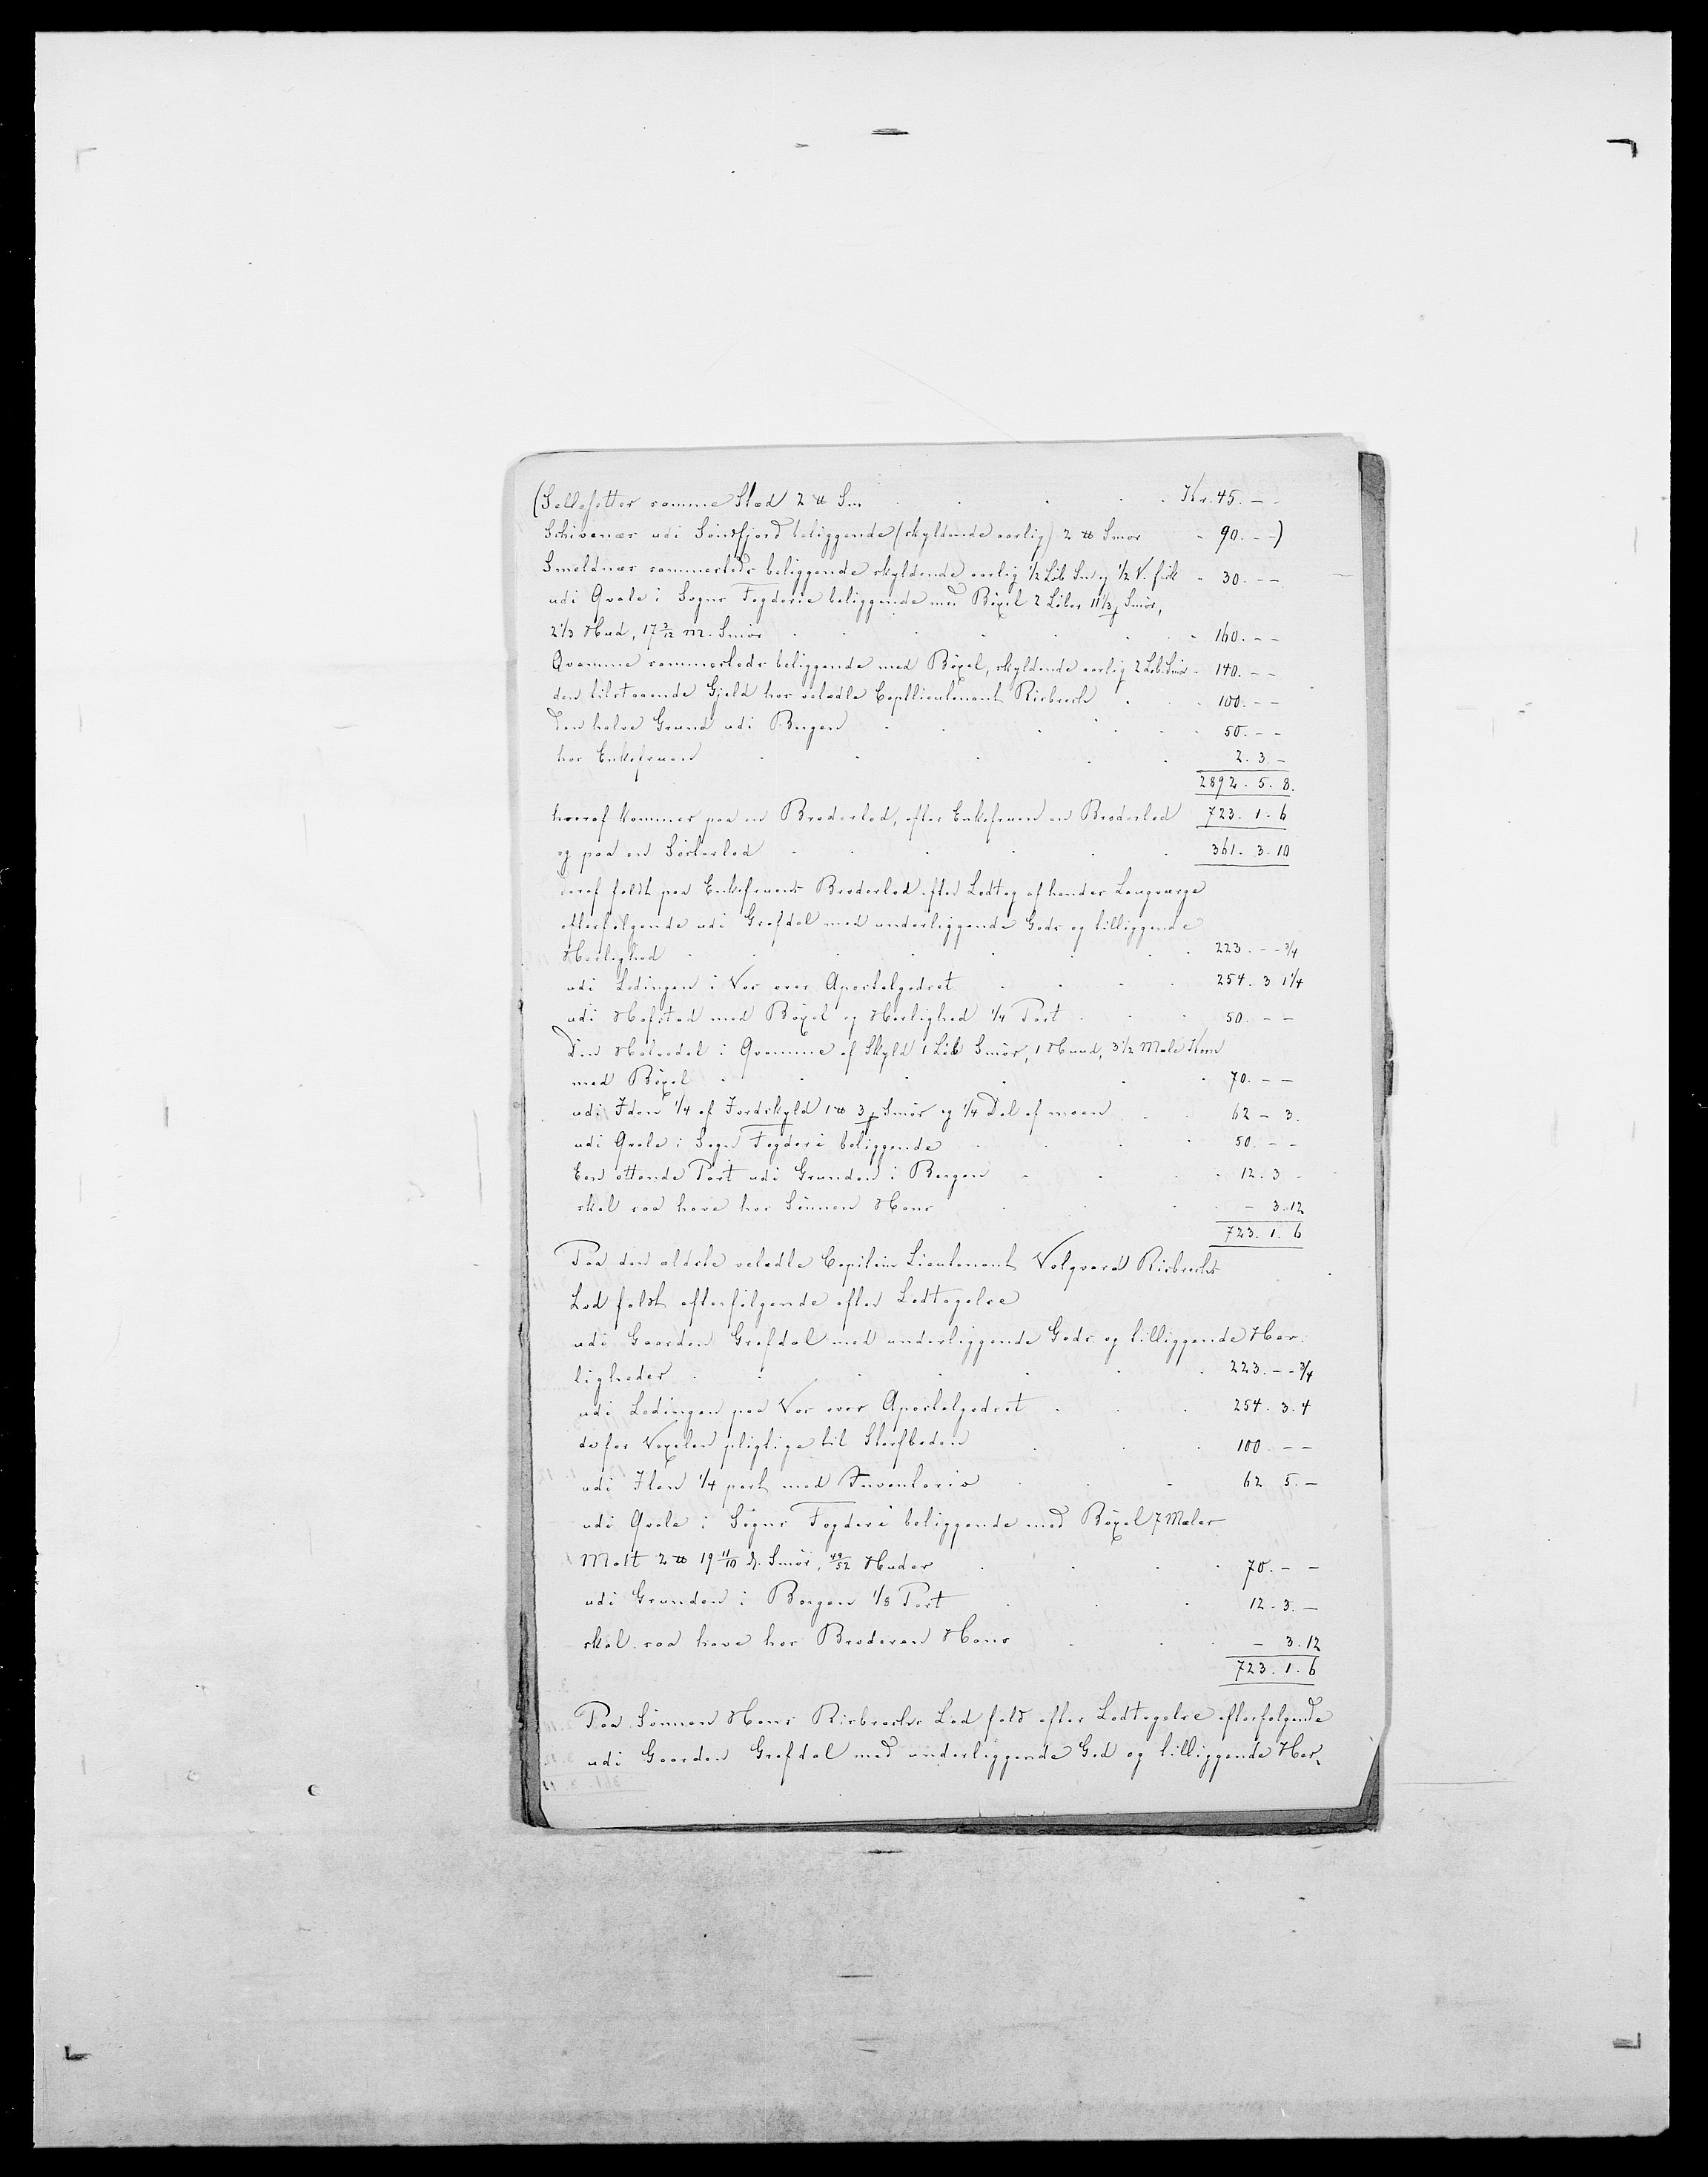 (Sellesetter samme Stæd 2 ℔ Sm. Kr. 45. - -
Schivenær udi Søndfjord beliggende (skyldende aarlig) 2 ℔ Smør - 90. - -)
Smeldnær sammesteds beliggende skyldende aarlig 1/2 Løb Sm og 1/2 V. fisk - 30. - -
udi Qvale i Sogns Fogderie beliggende med Bøxel 2 Løber 11 1/3 Smør,
2 1/3 Hud, 17 3/12 M. Smør - 160. - -
Qvamme sammesteds beliggende med Bøxel, skyldende aarlig 2 Løb Smør - 140. - -
den tilstaaende Gjeld hos veledle Captlieutenant Risbrech - 100. - -
Den halve Grund udi Bergen - 50. - -
hos Enkefruen 2. 3. -
2892. 5. 8.
hvoraf kommer paa en Broderlod, efter Enkefruen en Broderlod 723. 1. 6
og paa en Søsterlod 361. 3. 10
deraf faldt paa Enkefruens Broderlod efter Lodtog af hendes Laugværge
efterfølgende udi Grafdal med underliggende Gods og tilliggende
Herlighed 223. - - 3/4
udi Ledingen i Vos over Apostelgodset 254. 3 1 1/4
udi Hafstad med Bøxel og Herlighed 1/4 Part 50. - -
Den Halvedel i Qvamme af Skyld 1 Løb Smør, 1 Hund, 3 1/2 Mæle Korn
med Bøxel 70. - -
udi Iden 1/4 af Jordskyld 1 ℔ 3 Smør og 1/4 Del af moen 62 - 3.
udi Qvale i Sogn Fogderi beliggende 50. - -
Een ottende Part udi Grunden i Bergen - 12. 3 -
skal saa have hos Sønnen Hans - 3. 12
723. 1. 6
Paa den ældste veledle Capitein Lieutenant Volqvard Risbrechs
Lod faldt efterfølgende efter Lodtagelse
udi Gaarden Grafdal med underliggende Gods og tilliggende Her-
ligheder 223. - - 3/4
udi Ledingen paa Vos over Apostelgodset 254. 3. 4
de for Vexelen pligtige til Sterfboden 100 - -
udi Iden 1/4 part med Inventario 62 5. -
udi Qvale i Sogns Fogderi beliggende med Bøxel 7 Mæler
Malt 2 ℔ 19 11/10 Smør, 49/52 Huder 70. - -
udi Grunden i Bergen 1/8 Part 12. 3. -
skal saa have hos Broderen Hans - 3. 12
723. 1. 6
Paa Sønnen Hans Risbrechs Lod fald efter Lodtagelse efterfølgende
udi Gaarden Grafdal med underliggende God og tilliggende Her-